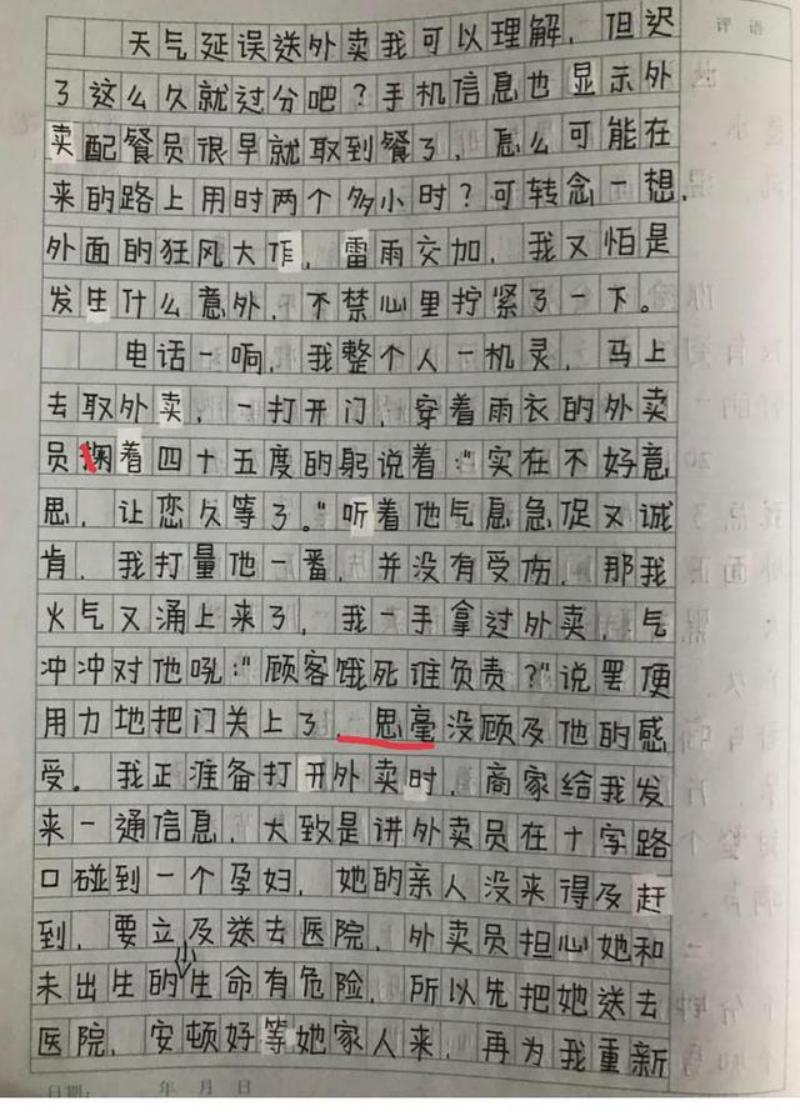 评语
天气延误送外卖我可以理解，但迟
了这么久就过分吧？手机信息也显示外
卖配餐员很早就取到餐了，怎么可能在
来的路上用时两个多小时？可转念一想，
外面的狂风大作，雷雨交加，我又怕是
发生什么意外，不禁心里拧紧了一下。
电话一响，我整个人一机灵，马上
去取外卖，一打开门，穿着雨衣的外卖
员掬着四十五度的躬说着："实在不好意
思，让您久等了。"听着他气息急促又诚
肯，我打量他一番，并没有受伤，那我
火气又涌上来了，我一手拿过外卖，气
冲冲对他吼："顾客饿死谁负责？"说罢便
用力地把门关上了，思毫没顾及他的感
受。我正准备打开外卖时，商家给我发
来一通信息，大致是讲外卖员在十字路
口碰到一个孕妇，她的亲人没来得及赶
到，要立及送去医院，外卖员担心她和
未出生的小生命有危险，所以先把她送去
医院，安顿好等她家人来，再为我重新
日期： 年 月 日